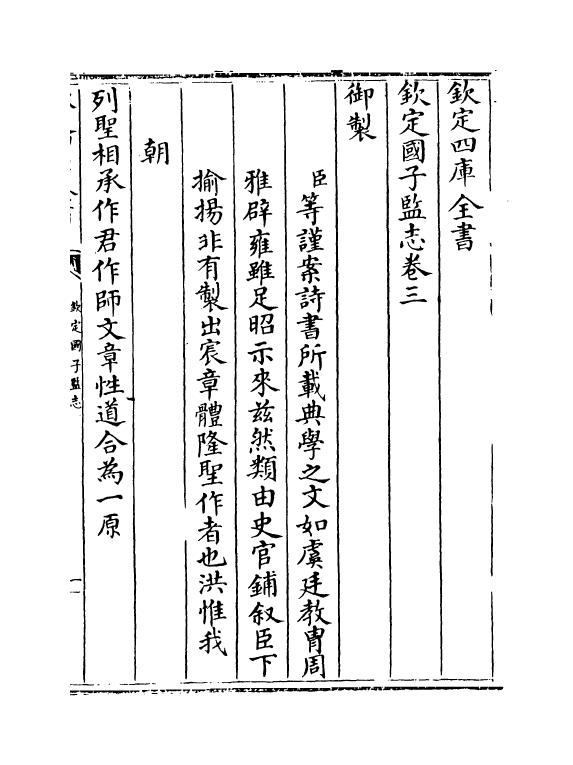 欽定四庫全書
欽定國子監志卷三
御製
臣等謹案詩書所載典學之文如虞廷教胄周
雅辟雍雖足昭示來茲然類由史官鋪叙臣下
揄揚非有製出宸章體隆聖作者也洪惟我
朝
列聖相承作君作師文章性道合為一原
欽定國子監志
一